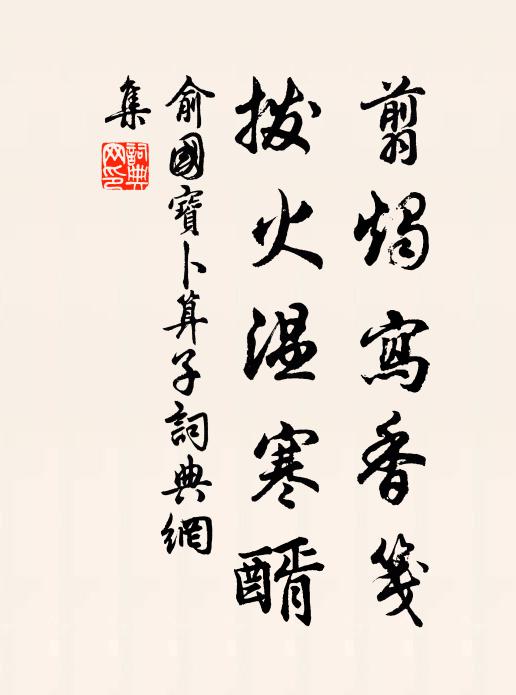 翦燭寫香箋
撥火溫寒醑
俞國寶卜算子詞典網
集
詞典
网印